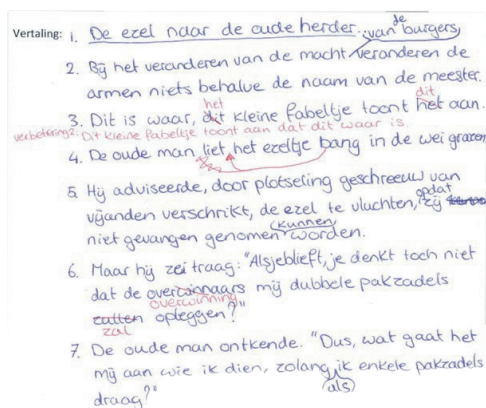 de
Vertaling: 1. De ezel naar de oude herder. van burgers,
2. Bij het veranderen van de macht veranderen de
armen niets behalve de naam van de meester.
het dit
3. Dit is waar, dit kleine fabeltje toont het aan.
verbetering 2: Dit kleine fabeltje toont aan dat dit waar is.
4. De oude man liet het ezeltje bang in de wei grazen
5. Hij adviseerde, door plotseling geschreeuw van
vijanden verschrikt, de ezel te vluchten, opdat zij
niet gevangen genomen kunnen worden.
6. Maar hij zei traag: "Alsjeblieft, je denkt toch niet
dat de overwinnaars mij dubbele pakzadels
overwinning
zullen opleggen?"
zal
7. De oude man ontkende. "Dus, wat gaat het
mij aan wie ik dien, zolang ik enkele pakzadels
als
draag?"